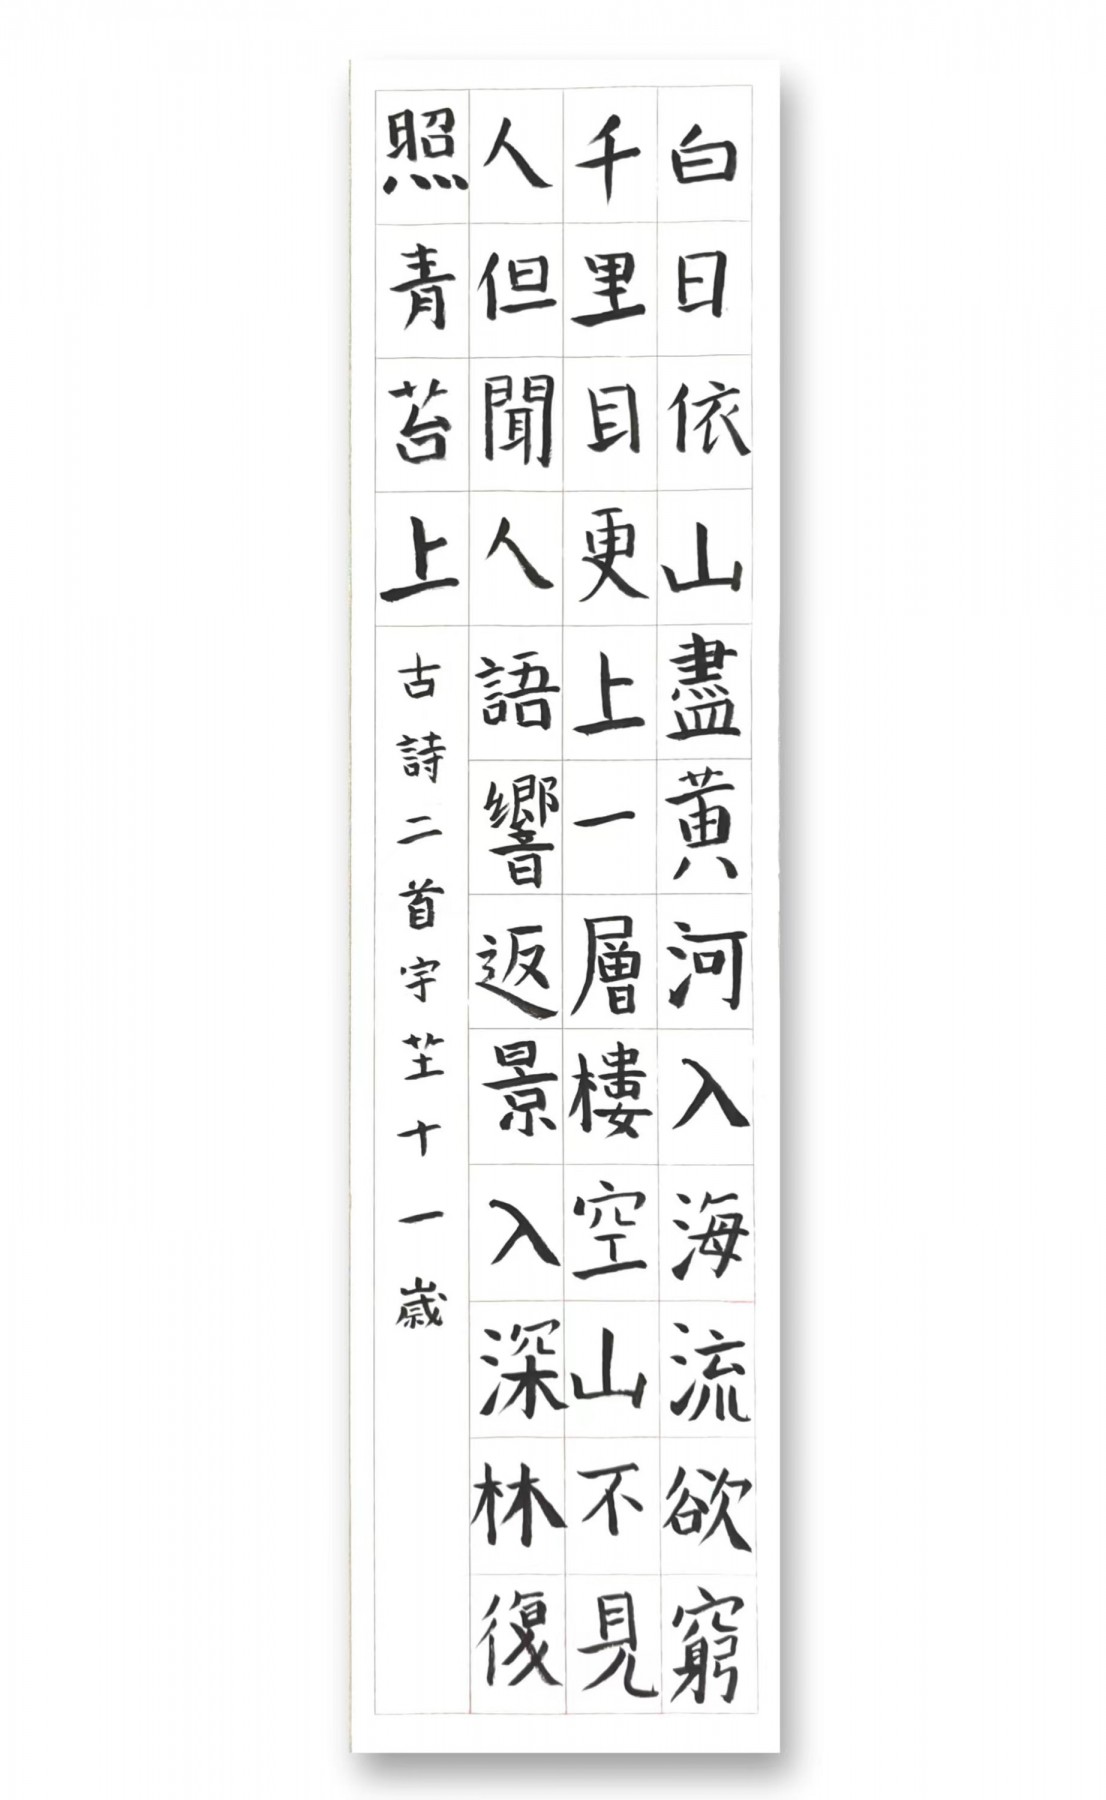 白日依山盡黃河入海流欲窮
千里目更上一層樓空山不見
人但聞人語響返景入深林復
照青苔上
古詩二首宇芏十一歲